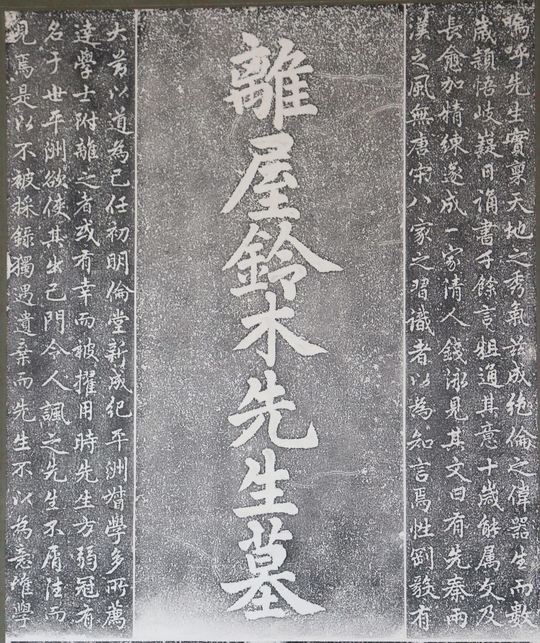 嗚呼先生實稟天地之秀氣茲成絶倫之偉器生而數
歲穎悟歧嶷日誦書千餘言粗通其意十歲能属文及
長愈加精練遂成一家清人錢泳見其文曰有先秦兩
漢之風無唐宋八家之習識者以為知言焉性剛毅有
離屋鈴木先生墓
大芳以道為己任初明倫堂新成紀平洲督學多所薦
達學士附離之者或有幸而被擢用時先生方弱冠有
名于世平洲欲使其出己門令人諷之先生不屑往而
見焉是以不被採錄獨遇遺棄而先生不以為意唯學